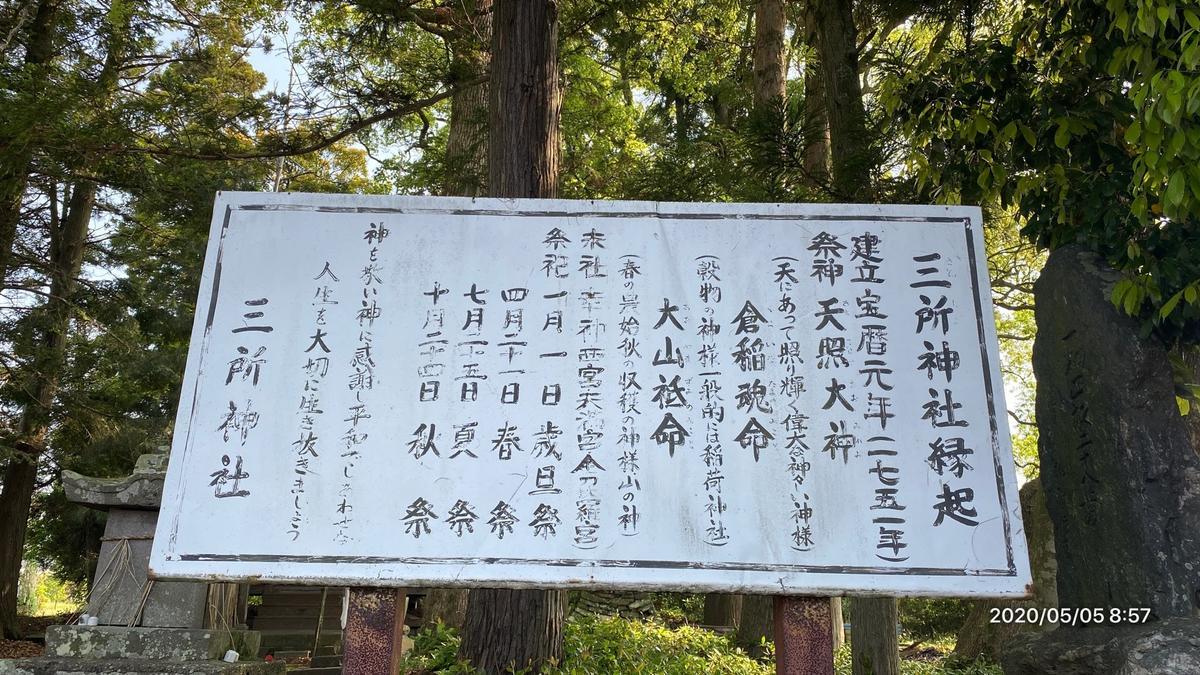 三所神社縁起
建立宝暦元年二七五一年)
祭神 天照大神
(天にあって照り輝く偉大な神々い神様
倉稲魂命
(穀物の神様一般的には稲荷神社)
大山祇命
(春の昇始秋の収穫の神様山の神)
末社 幸神西宮天満宮金刀羅宮
祭祀 一月一日 歳旦祭
四月二十一日 春祭
七月二十五日 夏祭
十月二十四日 秋祭
神を敬い神に感謝し平和でしあわせな
人生を大切に生き抜きましょう
三所神社
2020/05/05 8:57